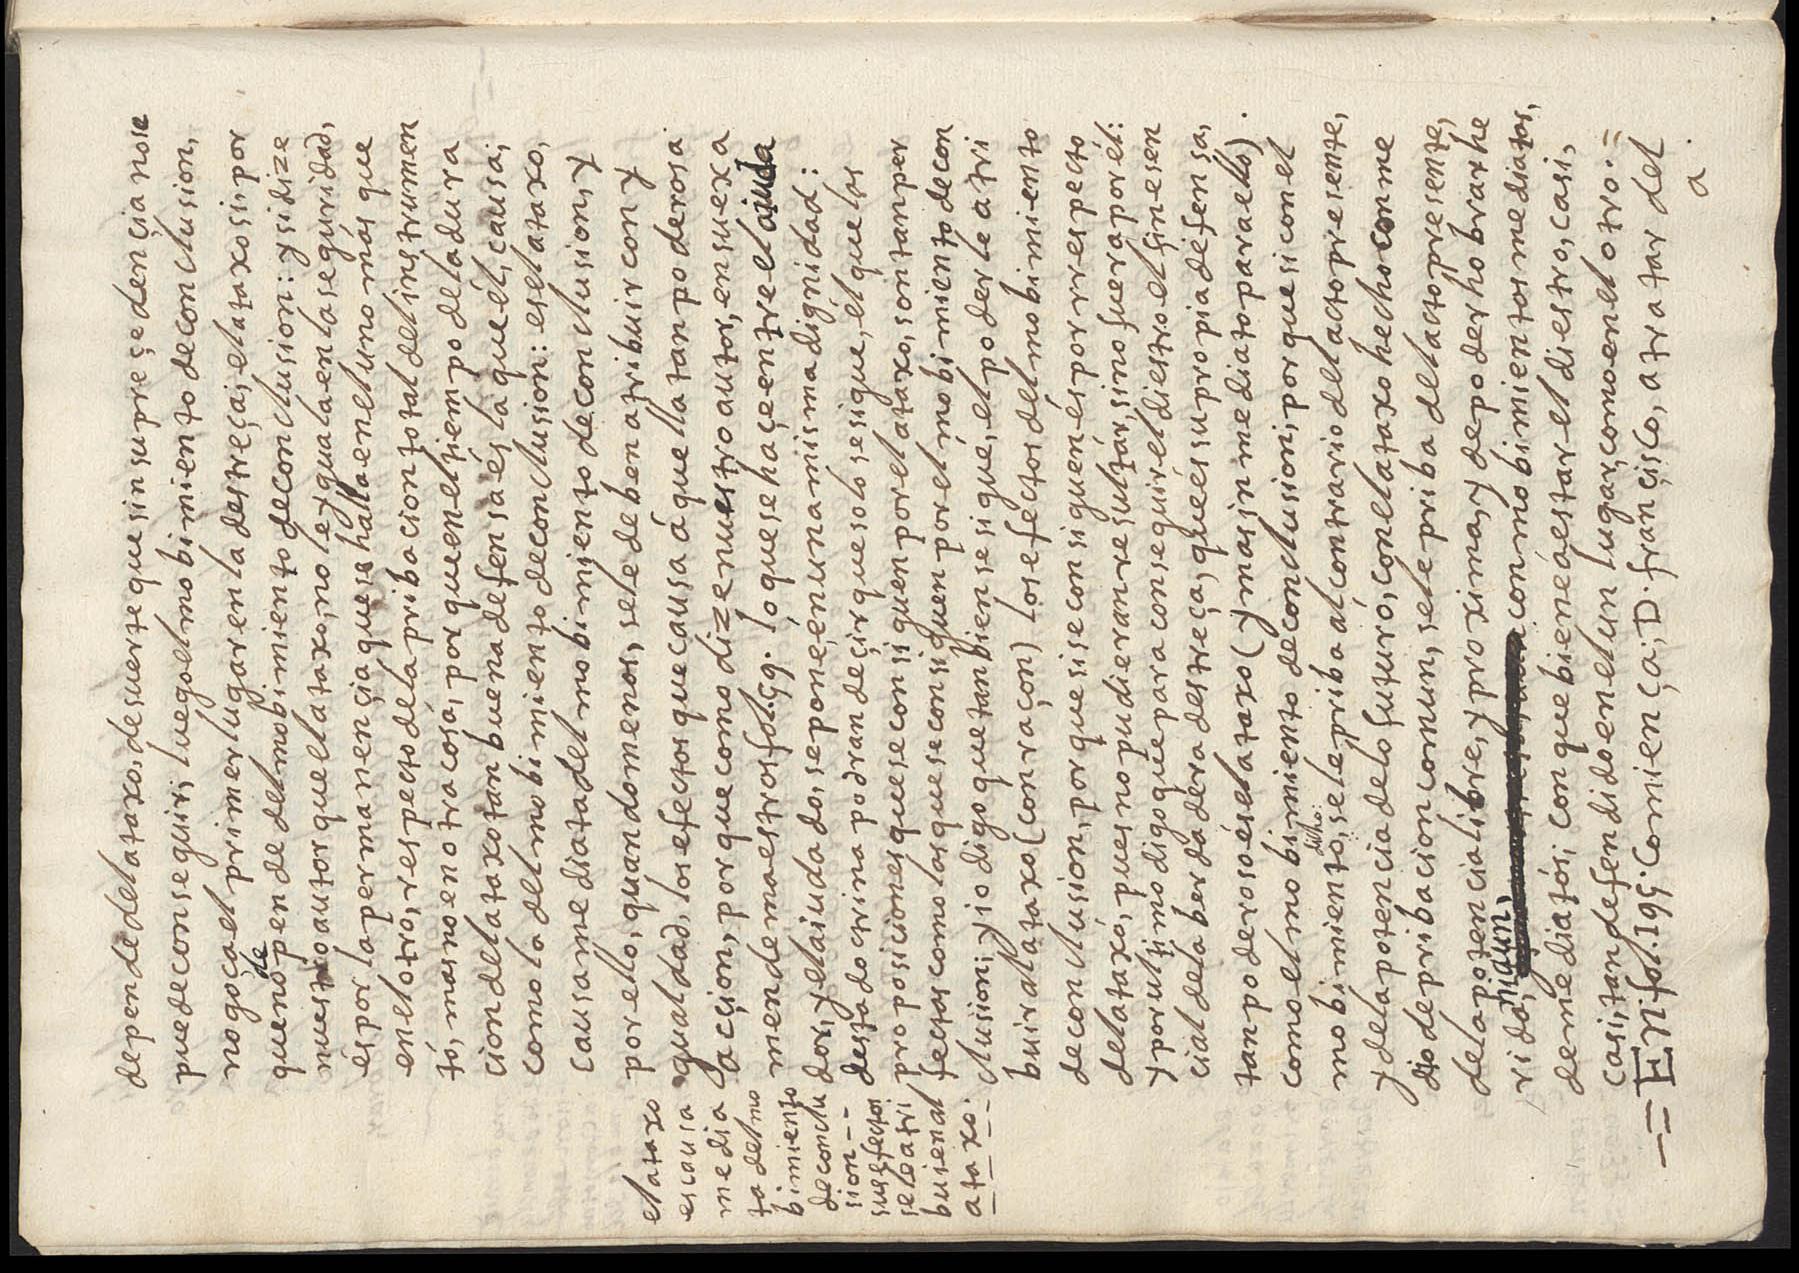 depende del ataxo, de suerte que sin su preçedençia no se
puede conseguir; luego el mobimiento de conclusion,
no goça el primer lugar en la destreça; el ataxo si por
que no pende del mobimiento de conclusion: y si dize
de
nuestro autor que el ataxo, no le yguala en la seguridad,
és por la permanençia que se halla en el uno más que
en el otro, respecto de la pribacion total del instrumen
tó, mas no en otra cosa, porque en el tiempo de la dura
cion del ataxo tan buena defensa és la que él, causa;
como la del mobimiento de conclusion: es el ataxo,
causa mediata del mobimiento de conclusion, y
por ello, quando menos, se le deben atribuir con y
gualdad, los efectos que causa á quella tan poderosa
acçion, porque como dize nuestro autor, en su exa
men de maestros fol. 59. lo que se haçe entre el aiuda
dor, y el aiudado, se pone, en una misma dignidad:
desta doctrina podran deçir que solo se sigue, el que las
proposiciones que se consiguen por el ataxo, son tan per
fectas como las que se consiguen por el mobimiento de con
clusion; y io digo que tanbien se sigue, el poderle atri
buir al ataxo (con raçon) los efectos del mobimiento
de conclusion, porque si se consiguen és por respecto
del ataxó, pues no pudieran resultár, si no fuera por él:
y por ultimo digo que para conseguir el diestro el fin esen
cial de la berdadéra destreça, que és su propia défensa,
tan poderoso és el ataxo (y mas inmediato para ello).
como el mobimiento de conclusion; porque si con el
mobimiento, se le priba al contrario del acto presente,
dicho:
y de la potencia de lo futuró, con el ataxo hecho con me
dio de pribacion comun, se le priba del acto presente,
de la potencia libre, y proxima, y de poder hobrar he
rida, ni aun, con mobimientos mediatos,
de mediatós; con que biene á estar el diestro, casi,
casi, tan defendido en el un lugar, como en el otro. =
= Eni fol. 195. Comiença; D. françisco, a tratar del
a.
el ataxo
es causa
media
ta del mo
bimiento
de conclu
sion --
sus efectos
se le atri
buien al
ataxo.